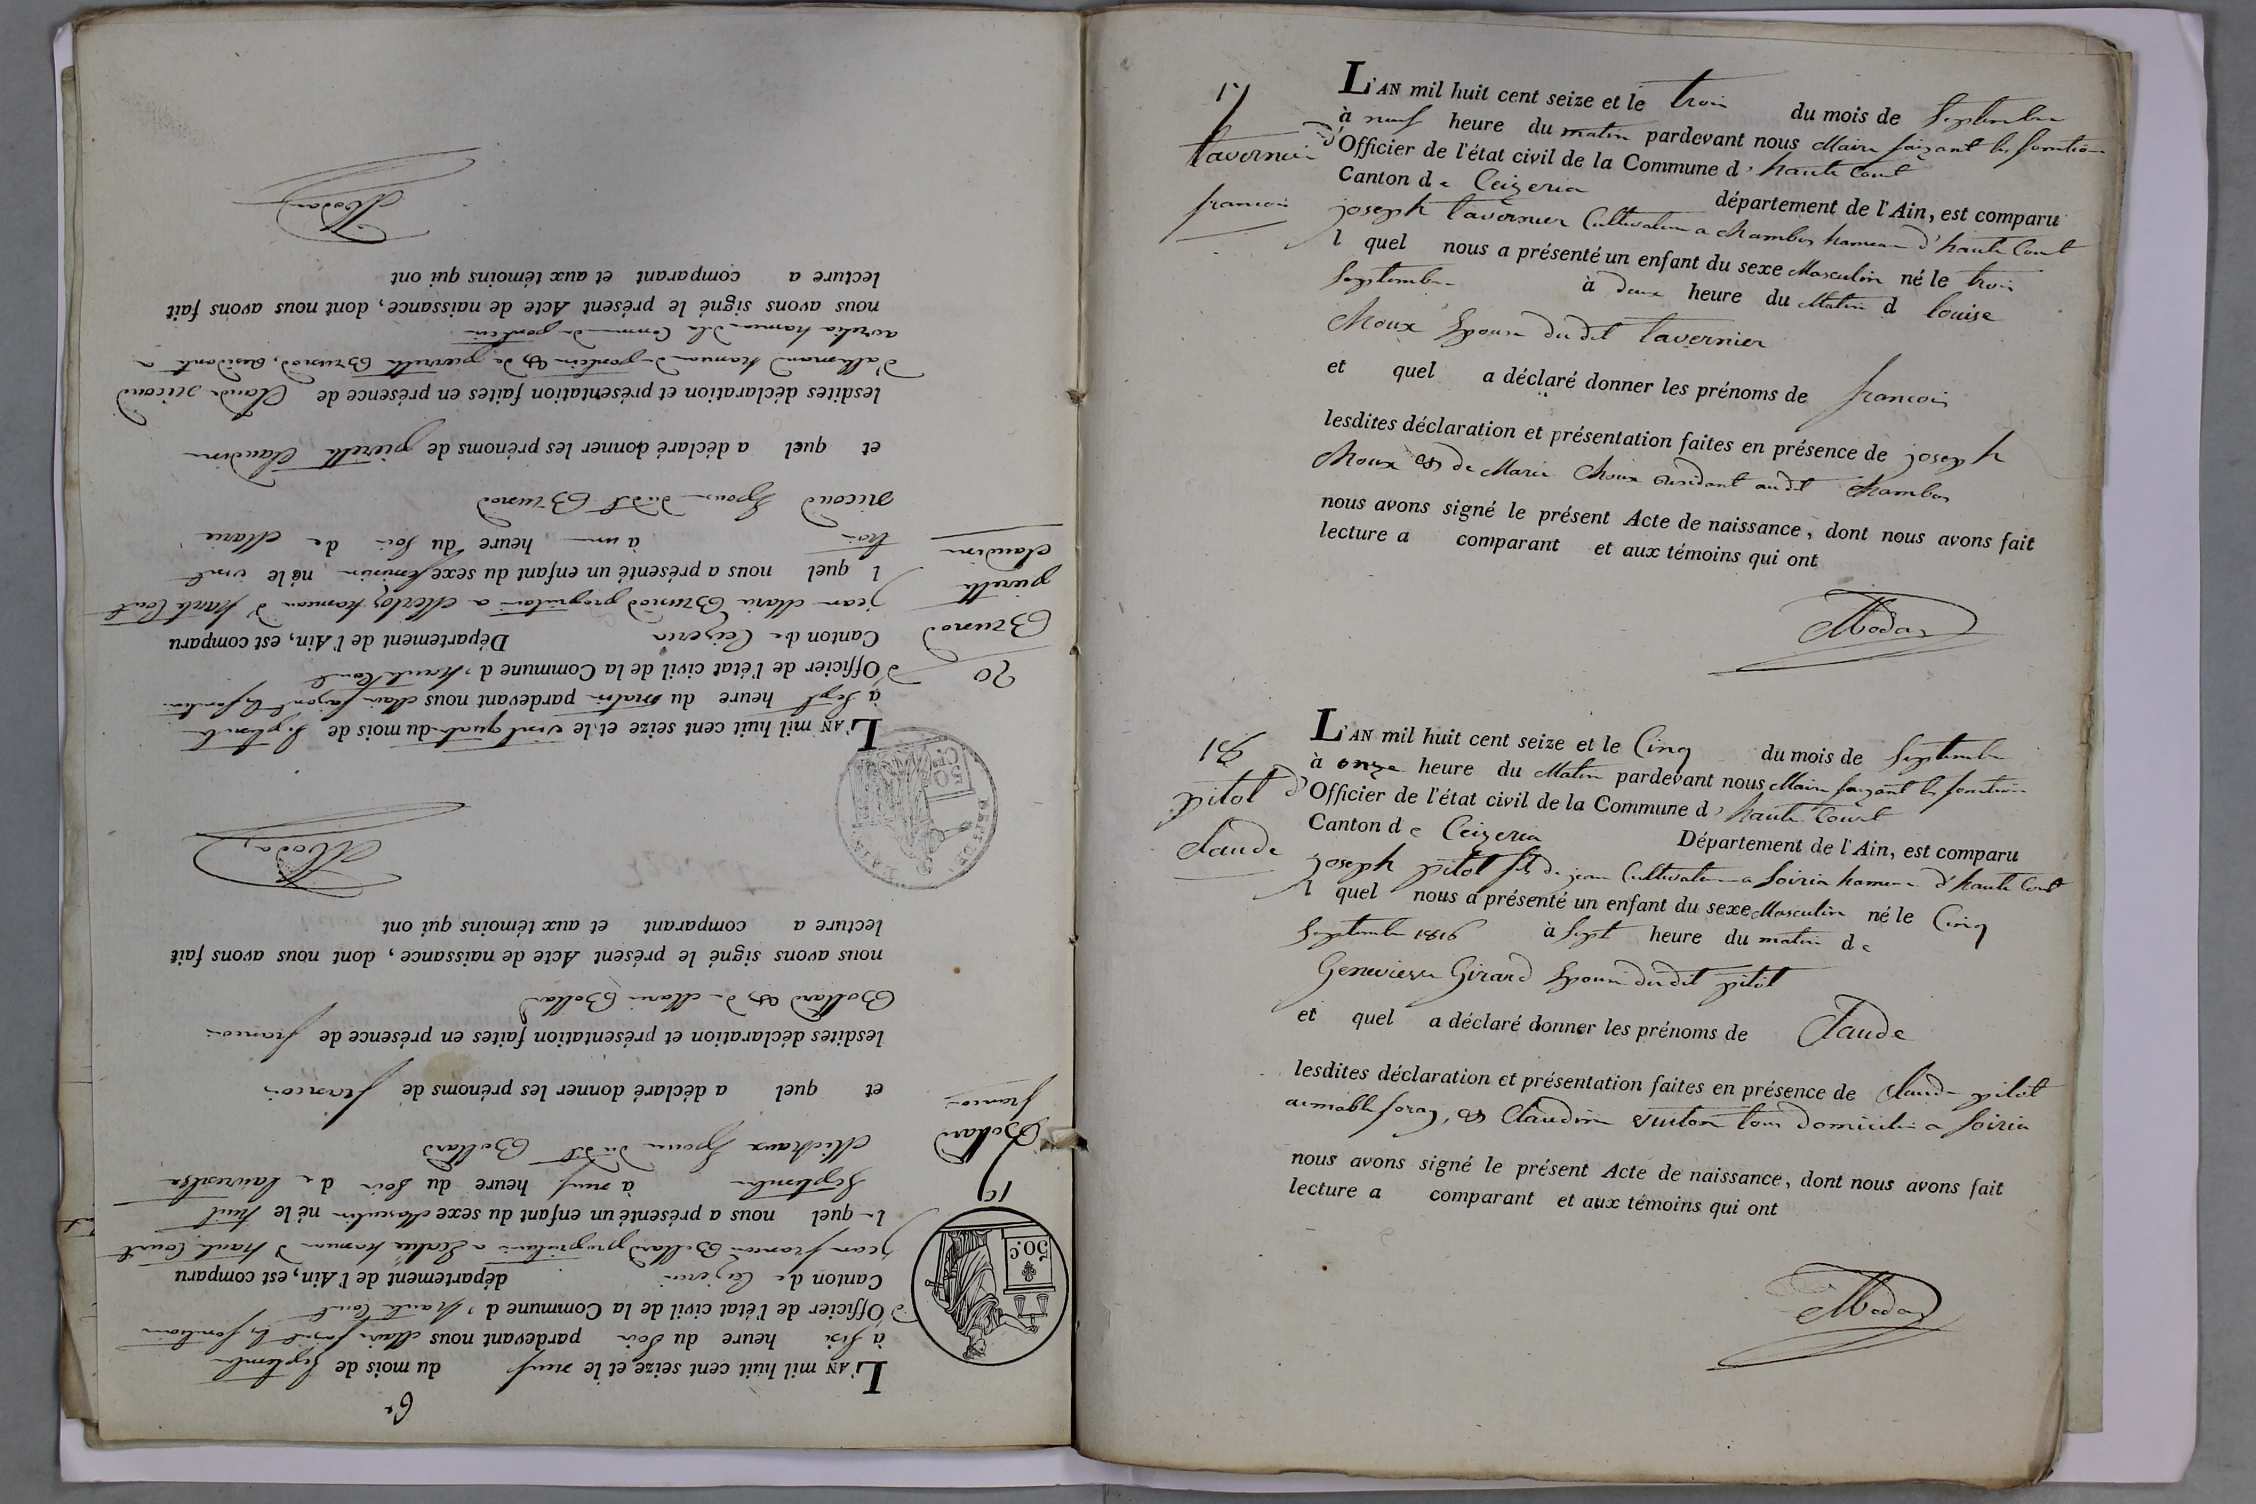 17
tavernier
francois
L'AN mil huit cent seize et le trois du mois de Septembre
à neuf heure du matin pardevant nous Maire faizant les fonctions
d'Officier de l'état civil de la Commune d'haute Court
Canton de Ceizeria département de l'Ain, est comparu
joseph tavernier Cultivateur a Chambos hameau d'haute Court
l quel nous a présenté un enfant du sexe Masculin né le trois
Septembre à deux heure du Matin d louise
Moux Epouse du dit tavernier
et quel a déclaré donner les prénoms de francois
lesdites déclaration et présentation faites en présence de joseph
Moux & de Marie Moux residant audit Chambos
nous avons signé le présent Acte de naissance, dont nous avons fait
lecture a comparant et aux témoins qui ont
Moda
18
pitot
Claude
L'AN mil huit cent seize et le Cinq du mois de Septembre
à onze heure du Matin pardevant nous Maire faizant les fonctions
d'Officier de l'état civil de la Commune d'haute Court
Canton de Ceizeria Département de l'Ain, est comparu
joseph pitot fils de jean Cultivateur a Soiria hameau d'haute Court
l quel nous a présenté un enfant du sexe Masculin né le Cinq
Septembre 1816 à Sept heure du matin de
Genevieve Girard Epouse du dit pitot
et quel a déclaré donner les prénoms de Claude
lesdites déclaration et présentation faites en présence de Claude pitot
aimable foray, & Claudine tous domicilié a Soiria
nous avons signé le présent Acte de naissance, dont nous avons fait
lecture a comparant et aux témoins qui ont
Moda
6e
50 c.
19
Bollard
francois
L'AN mil huit cent seize et le neuf du mois de Septembre
à Six heure du Soir pardevant nous Maire faizant les fonctions
d'Officier de l'état civil de la Commune d'haute Court
Canton de Ceizeria département de l'Ain, est comparu
jean francois Bollard proprietaire a hameau d'haute Court
l quel nous a présenté un enfant du sexe Masculin né le huit
Septembre à neuf heure du Soir de
Michaux Epouse du dit Bollard
et quel a déclaré donner les prénoms de francois
lesdites déclaration et présentation faites en présence de francois
Bollard & de Marie Bollard
nous avons signé le présent Acte de naissance, dont nous avons fait
lecture a comparant et aux témoins qui ont
Moda
50
20
Brunod
pierette
claudine
L'AN mil huit cent seize et le vint quatre du mois de Septembre
à Sept heure du matin pardevant nous Maire faizant les fonctions
d'Officier de l'état civil de la Commune d'haute Court
Canton de Ceizeria Département de l'Ain, est comparu
jean Marie Brunod proprietaire a Merloz hameau d'haute Court
l quel nous a présenté un enfant du sexe feminin né le vint
trois à un heure du Soir de Marie
nicoud Epouse du dit Brunod
et quel a déclaré donner les prénoms de pierette Claudine
lesdites déclaration et présentation faites en présence de Claude nicoud
d'allemand hameau de poncin & de pierrette Brunod, residante a
hameau de la Commune de poncin
nous avons signé le présent Acte de naissance, dont nous avons fait
lecture a comparant et aux témoins qui ont
Moda